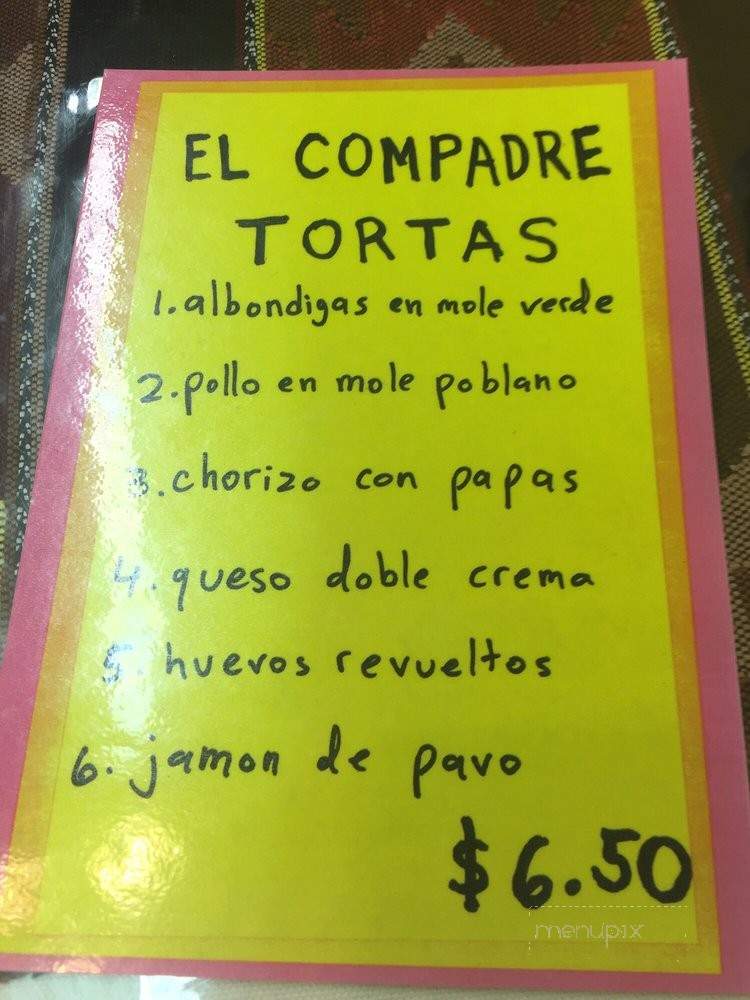 EL COMPADRE
TORTAS
1. albondigas en mole verde
2. pollo en mole poblano
3. chorizo con papas
4. queso doble crema
5. huevos revueltos
6. jamon de pavo
$6.50
menupix